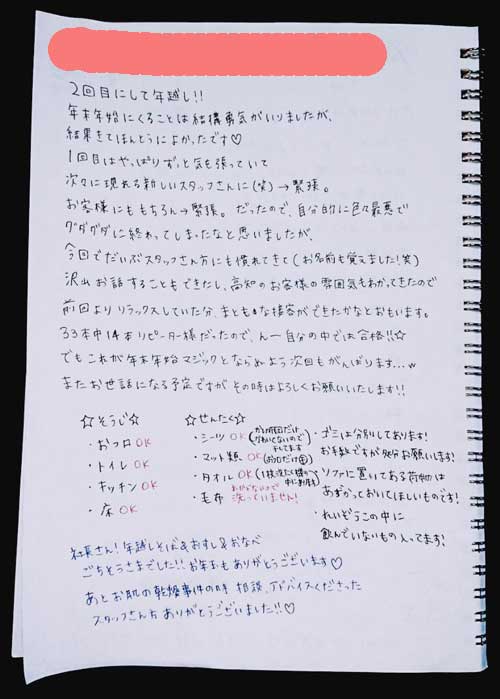 2回目にして年越し!!
年末年始にくることは結構勇気がいりましたが、
結果きてほんとうによかったです♡
1回目はやっぱりずっと気も張っていて
次々に現れる新しいスタッフさんに(笑)→緊張。
お客様にももちろん→緊張。だったので、自分的に色々最悪で
グダグダに終わってしまったなと思いましたが、
今回でだいぶスタッフさん方にも慣れてきて(お名前も覚えました!笑)
沢山お話することもできたし、高知のお客様の雰囲気もわかってきたので
前回よりリラックスしていた分、まともな接客ができたかなとおもいます。
33本中14本リピーター様だったので、んー自分の中では合格!!☆
でもこれが年末年始マジックとならぬよう次回もがんばります...w
またお世話になる予定ですがその時はよろしくお願いいたします!!
☆そうじ☆
・おフロOK
・トイレOK
・キッチンOK
・床OK
☆せんたく☆
・シーツOK(かけ布団だけかわいてないので干してます
・マット類OK(お口だけ
・タオルOK(1枚洗たく機の中にあり
・毛布 洗っていません!
・ゴミは分別してあります!
お手数ですが処分お願いします!
・ソファに置いてある荷物は
あずかっておいてほしいものです!
・れいぞうこの中に
飲んでいないもの入ってます!
社長さん!年越しそば&おすし&おなべ
ごちそうさまでした!!お年玉もありがとうございます♡
あとお肌の乾燥事件の時 相談、アドバイスくださった
スタッフさん方ありがとうございました!!♡